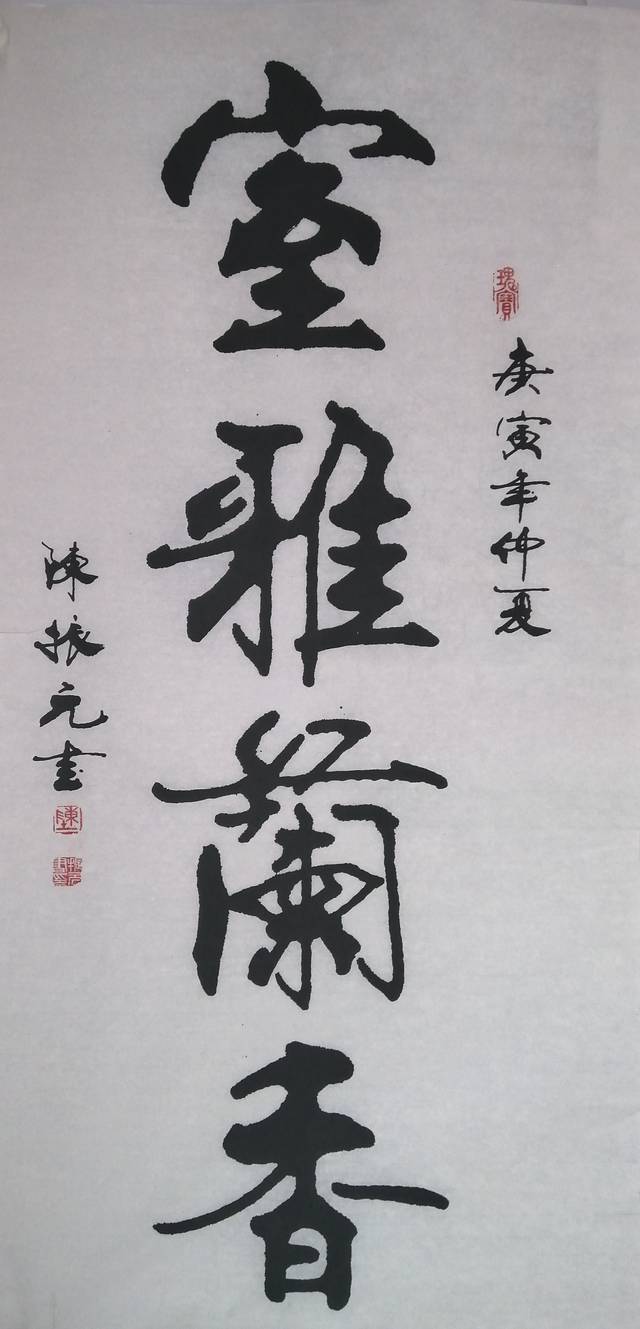 瑰寶
庚寅年仲夏
室雅蘭香
陳振元書
陳